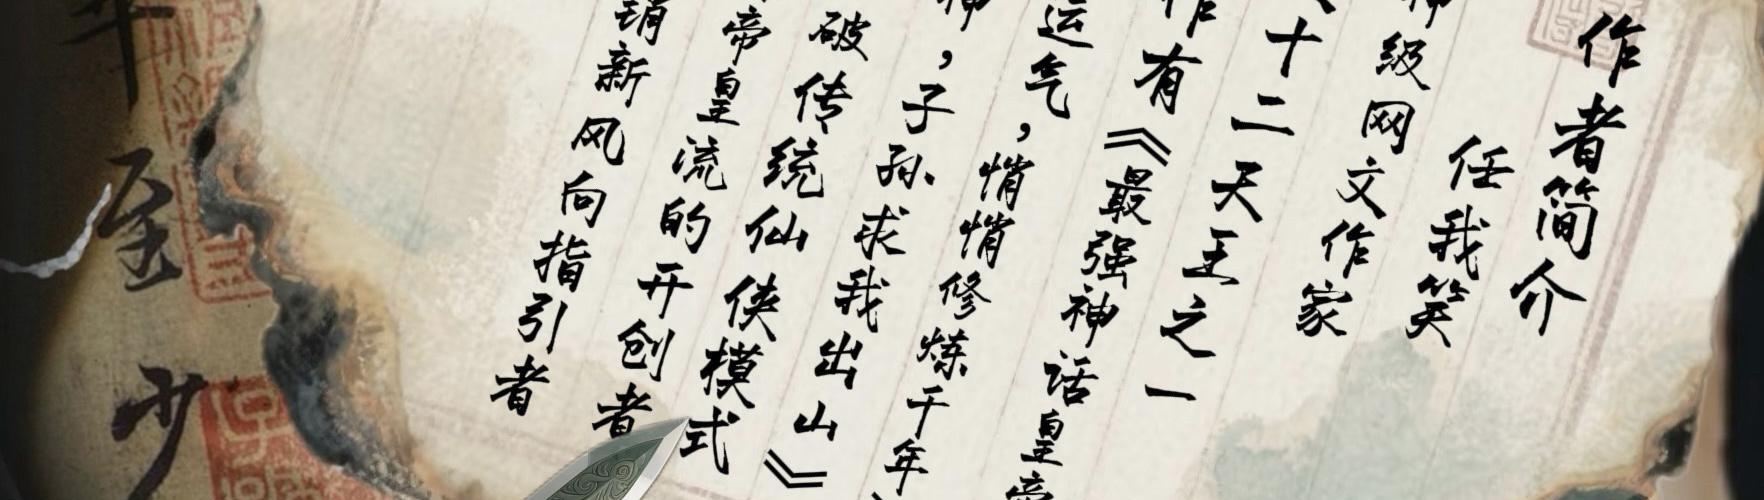 作者简介
任我笑
级网文作家
十二天王之一
有《最强神话皇帝
运气，悄悄修炼千年
，子孙求我出山》
破传统仙侠模式
帝皇流的开创者
新风向指引者
至少